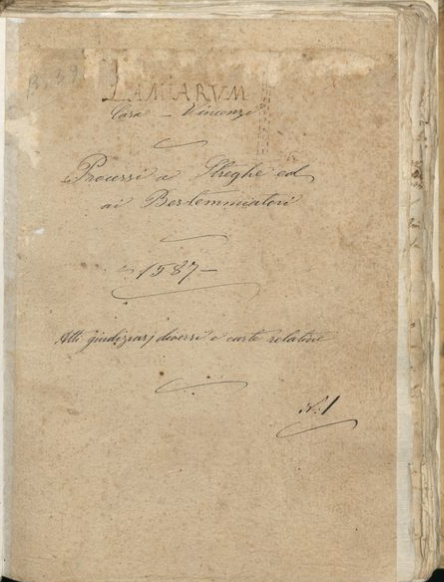 LAMIARVM
Casa - Vincenzi
Processi a Streghe ed
ai Bestemmiatori
1587-
Atti giudiziarj diversi e carte relative
N. 1